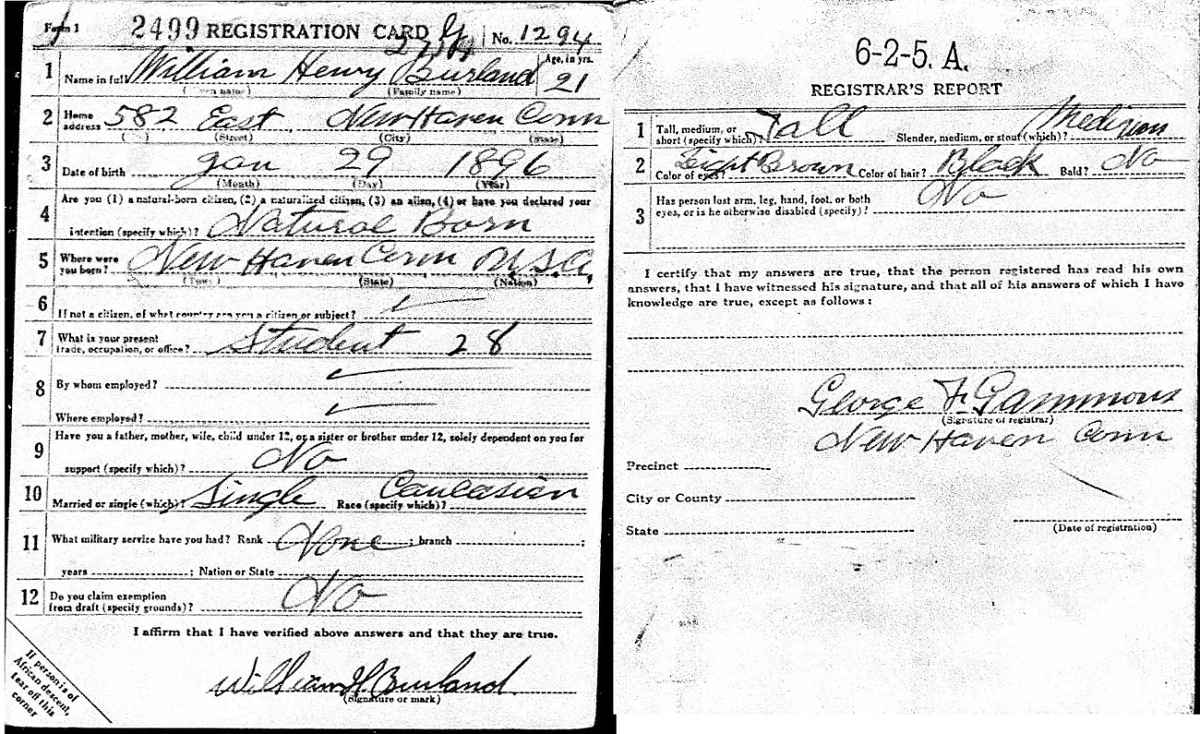 Form 1 2499 REGISTRATION CARD No. 1294
1 Name in full William Henry Burland Age, in yrs. 21
(Given name) (Family name)
2 Home address 582 East New Haven Conn
(Street) (City) (State)
3 Date of birth Jan 29 1896
(Month) (Day) (Year)
Are you (1) a natural-born citizen, (2) a naturalized citizen, (3) an alien, (4) or have you declared your
4 intention (specify which)? Natural Born
5 Where were you born? New Haven Conn U.S.A.
(Town) (State) (Nation)
6 If not a citizen, of what country are you a citizen or subject?
7 What is your present trade, occupation, or office? Student 28
8 By whom employed?
Where employed?
9 Have you a father, mother, wife, child under 12, or a sister or brother under 12, solely dependent on you for
support (specify which)? No
10 Married or single (which)? Single Race (specify which)? Caucasian
11 What military service have you had? Rank None ; branch ;
years ; Nation or State
12 Do you claim exemption from draft (specify grounds)? No
I affirm that I have verified above answers and that they are true.
William H Burland
(Signature or mark)
If person is of
African descent,
tear off this
corner
6-2-5. A.
REGISTRAR'S REPORT
1 Tall, medium, or short (specify which)? Tall Slender, medium, or stout (which)? Medium
2 Color of eyes? Light Brown Color of hair? Black Bald? No
3 Has person lost arm, leg, hand, foot, or both
eyes, or is he otherwise disabled (specify)? No
I certify that my answers are true, that the person registered has read his own
answers, that I have witnessed his signature, and that all of his answers of which I have
knowledge are true, except as follows:
George F. Gammons
(Signature of registrar)
New Haven Conn
Precinct
City or County
State
(Date of registration)